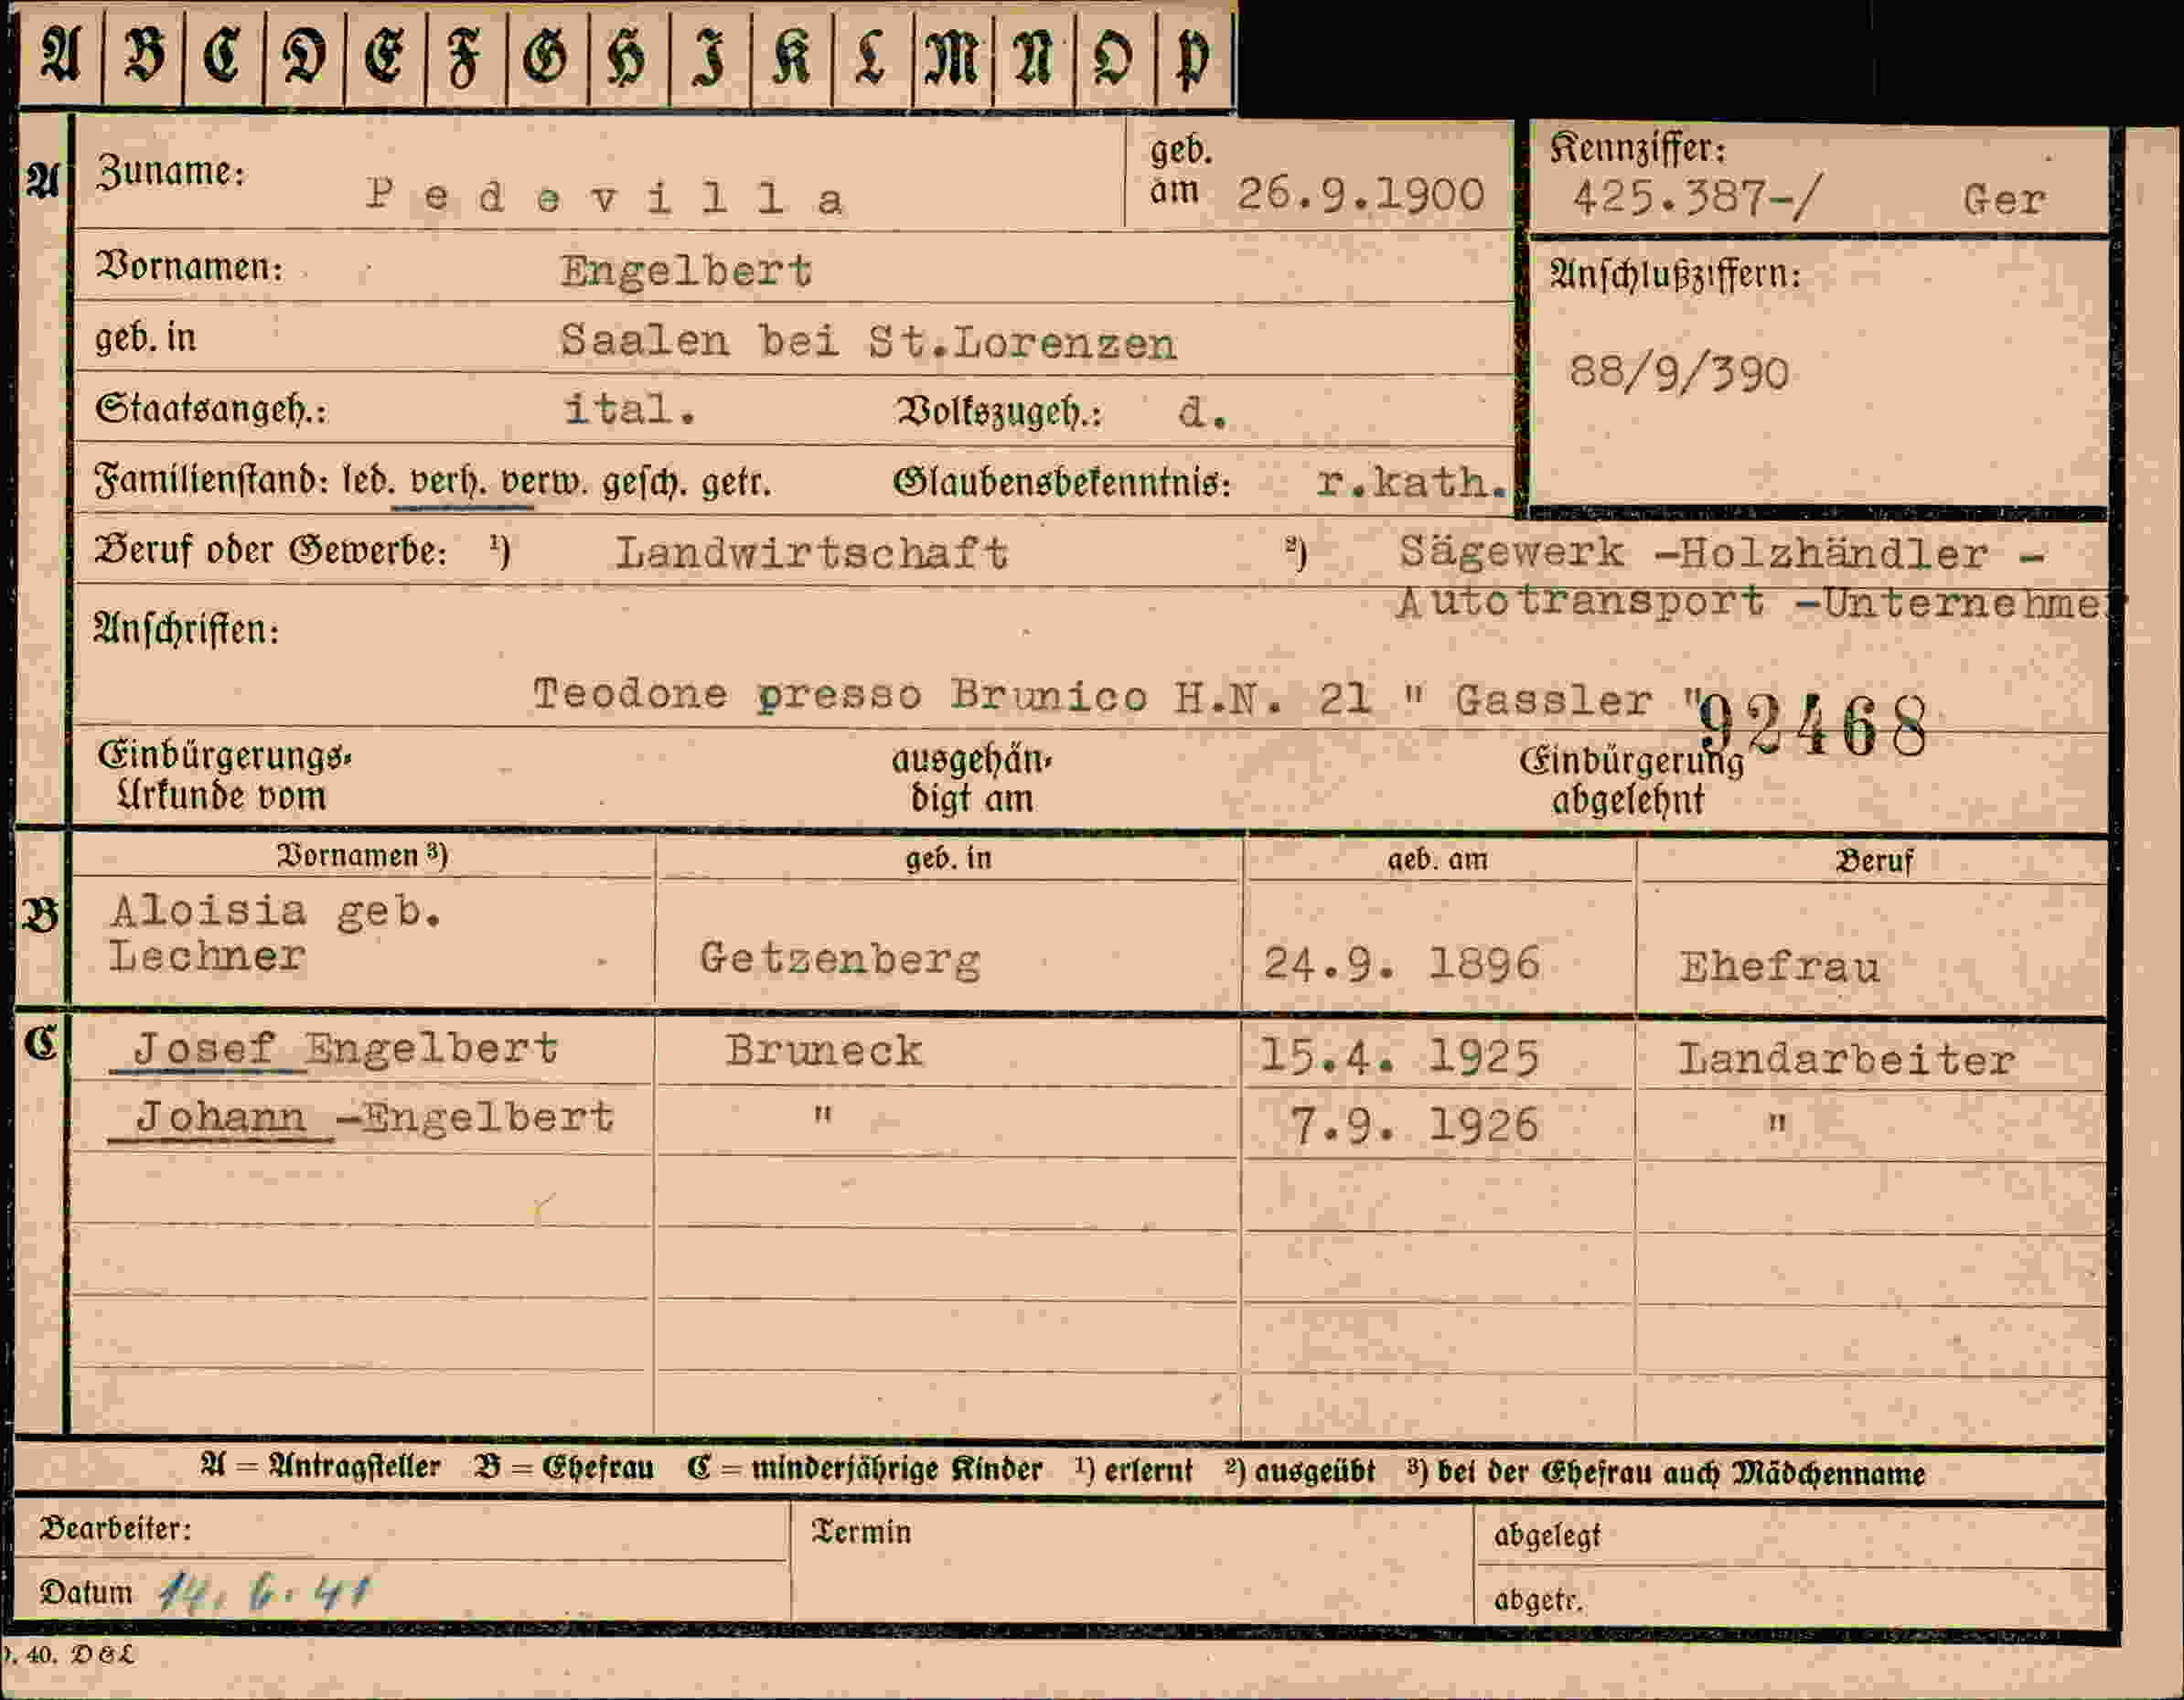 A B C D E F G H I K L M N O P
A Zuname: Pedevilla geb. am 26.9.1900 Kennziffer: 425.387-/ Ger
Vornamen: Engelbert Anschlußziffern:
geb. in Saalen bei St.Lorenzen 88/9/390
Staatsangeh.: ital. Volkszugeh.: d.
Familienstand: led. verh. verw. gesch. getr. Glaubensbekenntnis: r.kath.
Beruf oder Gewerbe: ¹) Landwirtschaft ²) Sägewerk -Holzhändler -
Autotransport -Unternehme
Anschriften:
Teodone presso Brunico H.N. 21 " Gassler "
92468
Einbürgerungs- Urkunde vom ausgehän- digt am Einbürgerung abgelehnt
Vornamen ³) geb. in geb. am Beruf
B Aloisia geb.
Lechner Getzenberg 24.9. 1896 Ehefrau
C Josef Engelbert Bruneck 15.4. 1925 Landarbeiter
Johann -Engelbert " 7.9. 1926 "
A = Antragsteller B = Ehefrau C = minderjährige Kinder ¹) erlernt ²) ausgeübt ³) bei der Ehefrau auch Mädchenname
Bearbeiter: Termin abgelegt
Datum 14. 6. 41 abgetr.
. 40. D & L